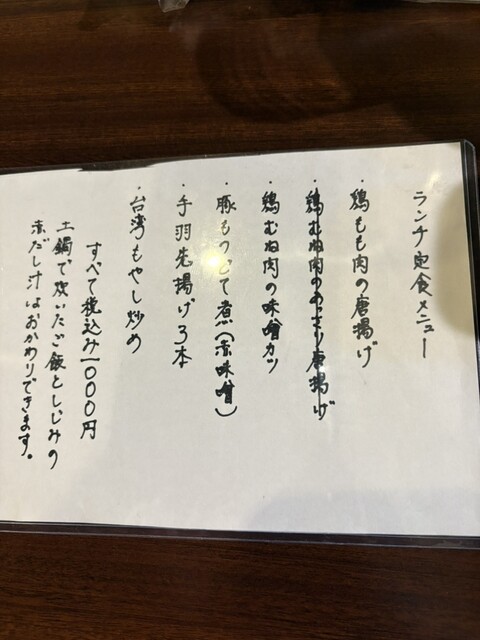 ランチ定食メニュー
・鶏もも肉の唐揚げ
・鶏むね肉のあっさり唐揚げ
・鶏むね肉の味噌カツ
・豚もつどて煮(赤味噌)
・手羽先揚げ3本
・台湾もやし炒め
すべて税込み1000円
土鍋で炊いたご飯としじみの
赤だし汁はおかわりできます。